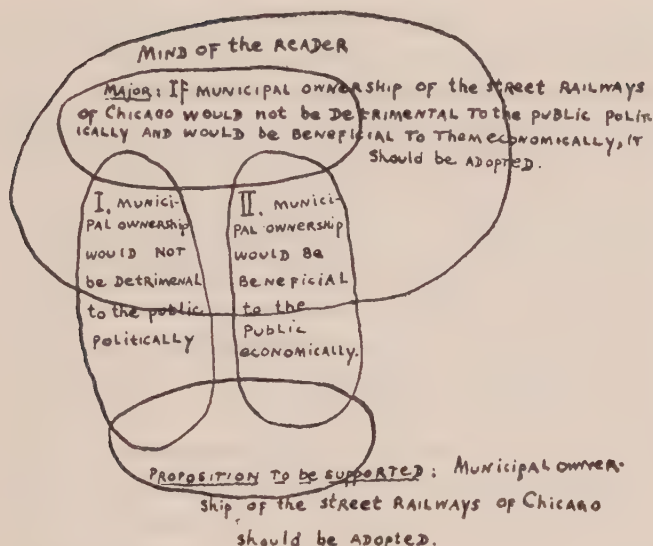 MIND OF the READER
MAJOR: If MUNICIPAL OWNERSHIP OF the STREET RAILWAYS
of CHICAGO WOULD not be DETRIMENTAL TO the PUBLIC POLIT-
ICALLY AND WOULD be BENEFICIAL TO THEM ECONOMICALLY, IT
Should be ADOPTED.
I. MUNICI-
PAL OWNERSHIP
WOULD NOT
be DETRIMENAL
to the public
POLITICALLY
II. MUNICI-
PAL OWNERSHIP
WOULD BE
BENEFICIAL
to the
PUBLIC
economically.
PROPOSITION TO be SUPPORTED: MUNICIPAL OWNER-
SHIP OF the STREET RAILWAYS OF CHICAGO
should be ADOPTED.